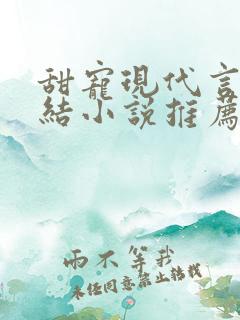 甜寵現代言
結小說推薦
雨不等我
未经同意禁止转载